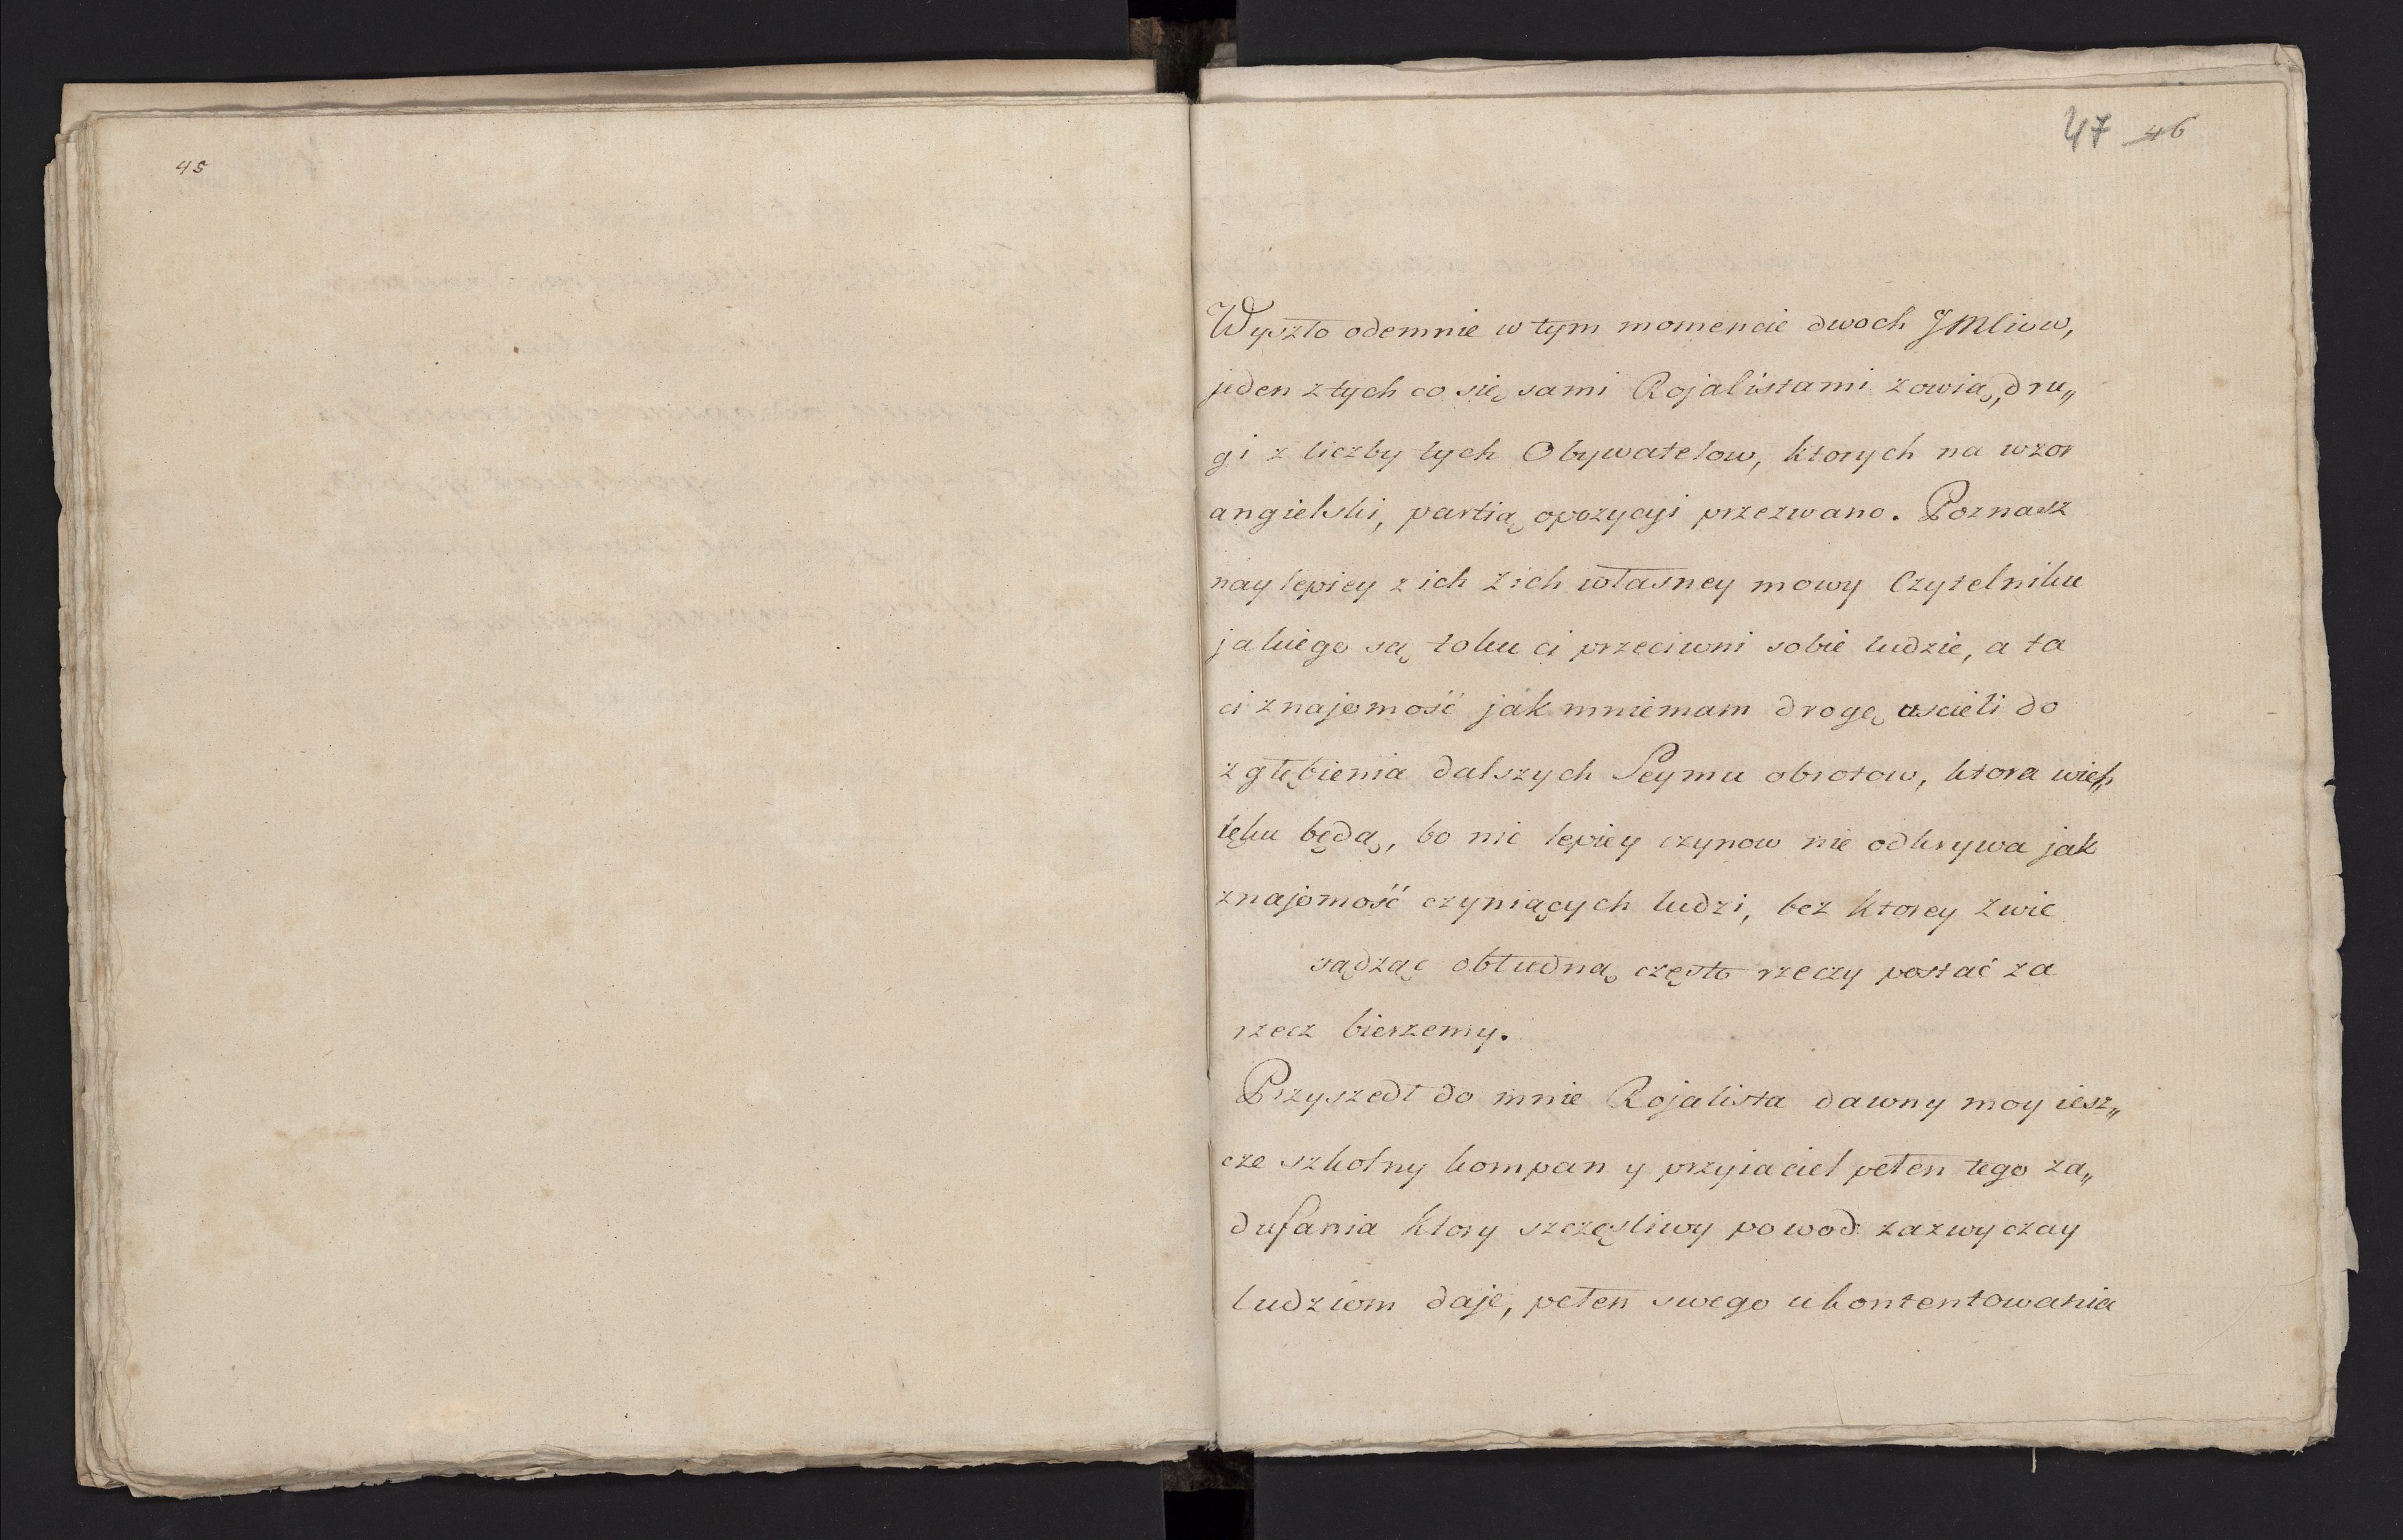 45
47 46
Wyszło odemnie w tym momencie dwoch JMliow,
jeden z tych co się sami Rojalistami zowią, dru„
gi z liczby tych Obywatelow, ktorych na wzor
angielski, partią opozycyi przezwano. Poznasz
naylepiey z ich z ich własney mowy Czytelniku
jakiego są toku ci przeciwni sobie ludzie, a ta
ci znajomość jak mniemam drogę uscieli do
zgłębienia dalszych Seymu obrotow, ktora
będą, bo nic lepiey czynow nie odkrywa jak
znajomość czyniących ludzi, bez ktorey zwie
sądząc obłudną często rzeczy postać za
rzecz bierzemy.
Przyszedł do mnie Rojalista dawny moy iesz„
cze szkolny kompan y przyiaciel pełen tego za„
dufania ktory szczęsliwy powod zazwyczay
ludziom daje, pełen swego ukontentowania